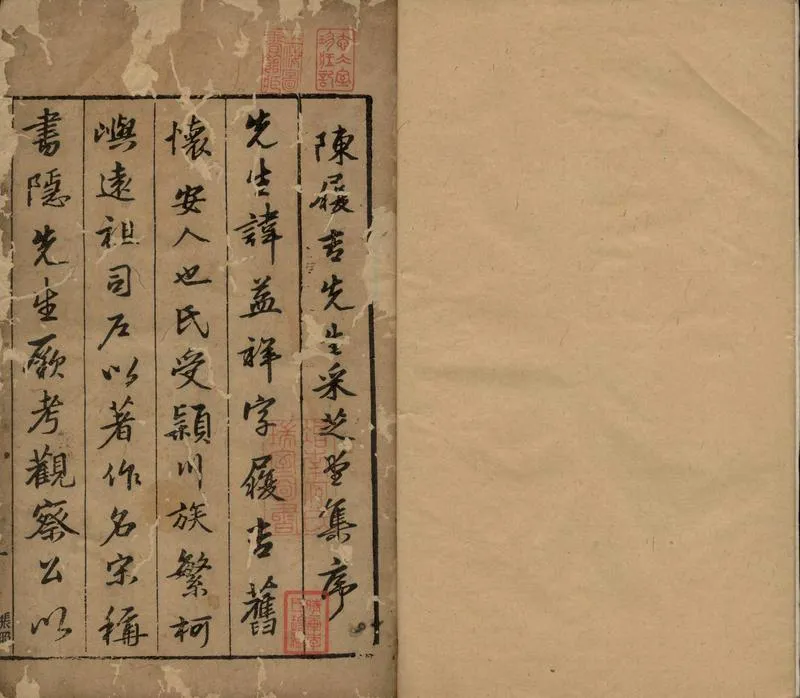 陳履吉先生采芝堂集序
先生諱益祥字履吉舊
懷安人也氏受潁川族繁柯
嶼遠祖司户以著作名宋稱
書隱先生厥考觀察公以